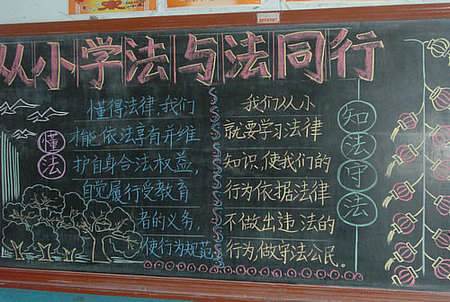 从小学法与法同行
懂法
懂得法律,我们
才能依法享有并维
护自身合法权益,
自觉履行受教育
者的义务,
使行为规范。
我们从小
就要学习法律
知识,使我们的
行为依据法律
不做出违法的
行为,做守法公民。
知法守法